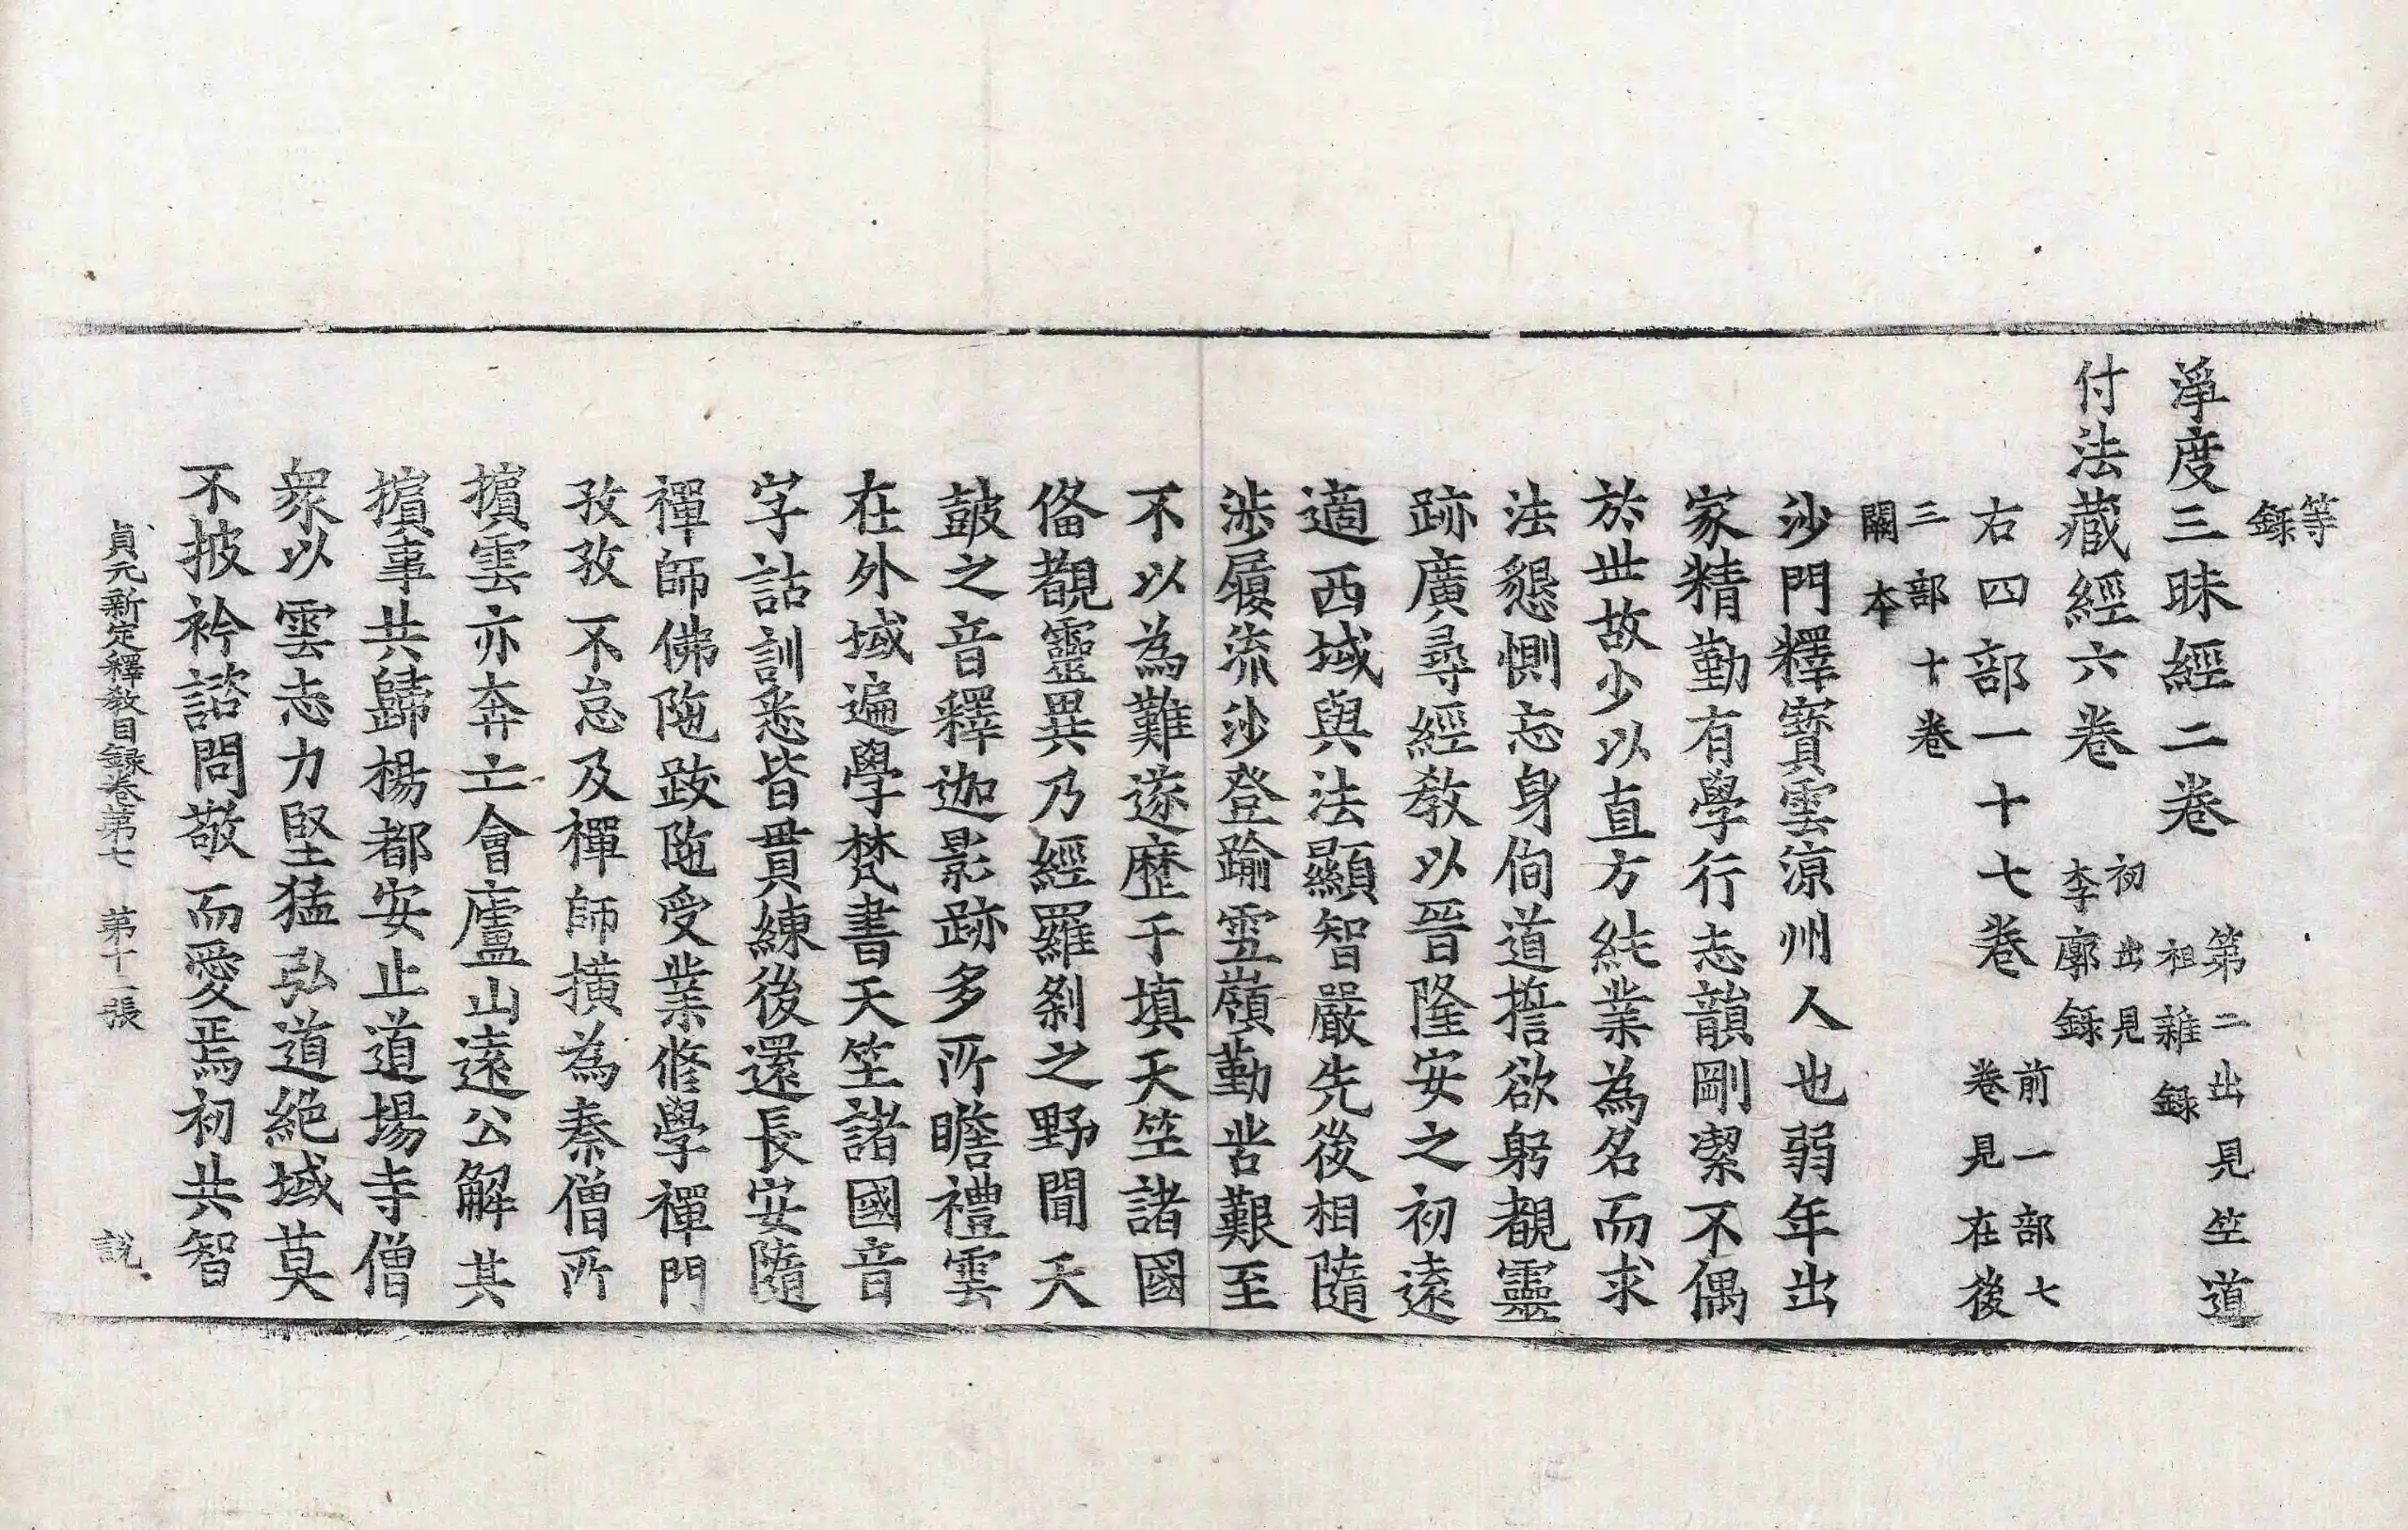 等
錄
淨度三昧經二卷 第二出見竺道
祖雜錄
付法藏經六卷 初出見
李廓錄
右四部一十七卷 前一部七
卷見在後
三部十卷
闕本
沙門釋寶雲涼州人也弱年出
家精勤有學行志韻剛潔不偶
於世故少以直方純業為名而求
法懇惻忘身徇道誓欲躬覩靈
跡廣尋經教以晉隆安之初遠
適西域與法顯智嚴先後相隨
涉履流沙登踰雪嶺勤苦艱至
不以為難遂歷于填天竺諸國
俻覩靈異乃經羅剎之野聞天
皷之音釋迦影跡多所瞻禮雲
在外域遍學梵書天竺諸國音
字詁訓悉皆貫練後還長安隨
禪師佛陁跋陁受業修學禪門
孜孜不怠及禪師擯為秦僧所
擯雲亦奔亡會廬山遠公解其
擯事共歸楊都安止道場寺僧
衆以雲志力堅猛弘道絕域莫
不披衿諮問敬而愛焉初共智
貞元新定釋教目録卷第七 第十二張 說